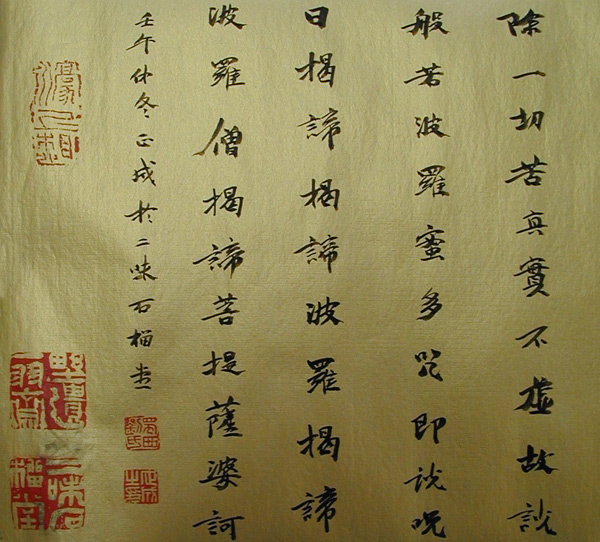 除一切苦真實不虛故說
般若波羅蜜多咒即說呪
曰揭諦揭諦波羅揭諦
波羅僧揭諦菩提薩婆訶
壬午仲冬正成於二味石榴堂
二味石榴堂